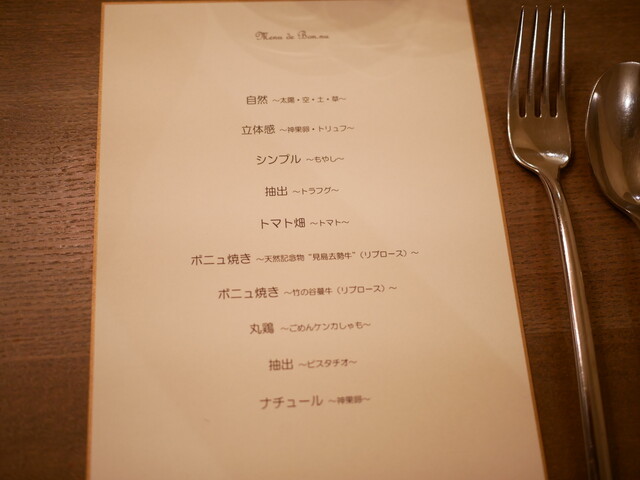 Menu de Bon.nu
自然 ～太陽・空・土・草～
立体感 ～神楽師・トリュフ～
シンプル ～もやし～
抽出 ～トラフグ～
トマト畑 ～トマト～
ボニュ焼き ～天然記念物 “見島去勢牛”（リブロース）～
ボニュ焼き ～竹の谷蔓牛（リブロース）～
丸鶏 ～ごめんケンカしゃも～
抽出 ～ピスタチオ～
ナチュール ～神楽師～